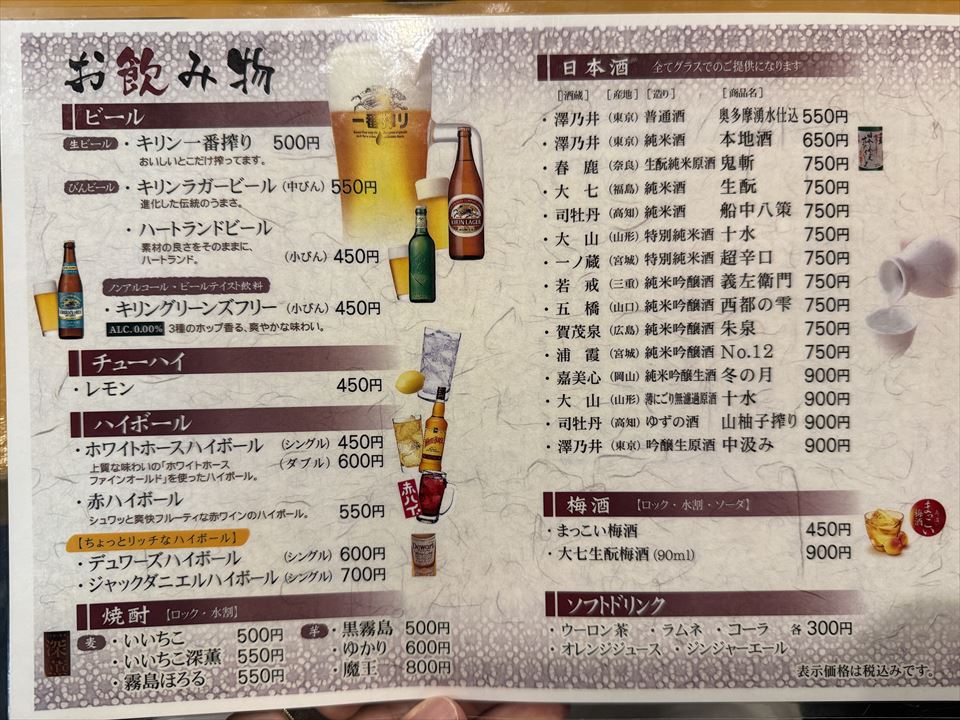 お飲み物
ビール
生ビール ・キリン一番搾り 500円
おいしいとこだけ搾ってます。
びんビール ・キリンラガービール（中びん）550円
進化した伝統のうまさ。
・ハートランドビール
素材の良さをそのままに、
ハートランド。
（小びん）450円
ノンアルコール・ビールテイスト飲料
・キリングリーンズフリー（小びん）450円
ALC.0.00% 3種のホップ香る、爽やかな味わい。
チューハイ
・レモン 450円
ハイボール
・ホワイトホースハイボール（シングル）450円
上質な味わいの「ホワイトホース （ダブル）600円
ファインオールド」を使ったハイボール。
・赤ハイボール
シュワッと爽快フルーティな赤ワインのハイボール。 550円
【ちょっとリッチなハイボール】
・デュワーズハイボール （シングル）600円
・ジャックダニエルハイボール（シングル）700円
焼酎 【ロック・水割】
麦 ・いいちこ 500円
・いいちこ深薫 550円
・霧島ほろる 550円
芋 ・黒霧島 500円
・ゆかり 600円
・魔王 800円
一番搾り
KIRIN LAGER
赤ハイ
Dewar's
深薫
日本酒 全てグラスでのご提供になります
［酒蔵］［産地］［造り］ ［商品名］
・澤乃井（東京）普通酒 奥多摩湧水仕込 550円
・澤乃井（東京）純米酒 本地酒 650円
・春鹿（奈良）生酛純米原酒 鬼斬 750円
・大七（福島）純米酒 生酛 750円
・司牡丹（高知）純米酒 船中八策 750円
・大山（山形）特別純米酒 十水 750円
・一ノ蔵（宮城）特別純米酒 超辛口 750円
・若戎（三重）純米吟醸酒 義左衛門 750円
・五橋（山口）純米吟醸酒 西都の雫 750円
・賀茂泉（広島）純米吟醸酒 朱泉 750円
・浦霞（宮城）純米吟醸酒 No.12 750円
・嘉美心（岡山）純米吟醸生酒 冬の月 900円
・大山（山形）薄にごり無濾過原酒 十水 900円
・司牡丹（高知）ゆずの酒 山柚子搾り 900円
・澤乃井（東京）吟醸生原酒 中汲み 900円
梅酒 【ロック・水割・ソーダ】
・まっこい梅酒 450円
・大七生酛梅酒(90ml) 900円
まっこい
梅酒
ソフトドリンク
・ウーロン茶 ・ラムネ ・コーラ 各300円
・オレンジジュース ・ジンジャーエール
表示価格は税込みです。